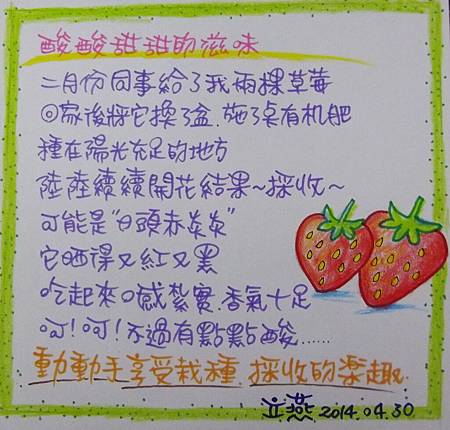 酸酸甜甜的滋味
二月份同事給了我兩棵草莓
回家後將它換了盆.施了桌有机肥
種在陽光充足的地方
陸陸續續開花結果~採收~
可能是"日頭赤炎炎"
它晒得又紅又黑
吃起來口感紮實.香氣十足
呵!呵!不過有點點酸......
動動手享受栽種.採收的樂趣.
立燕 2014.04.30